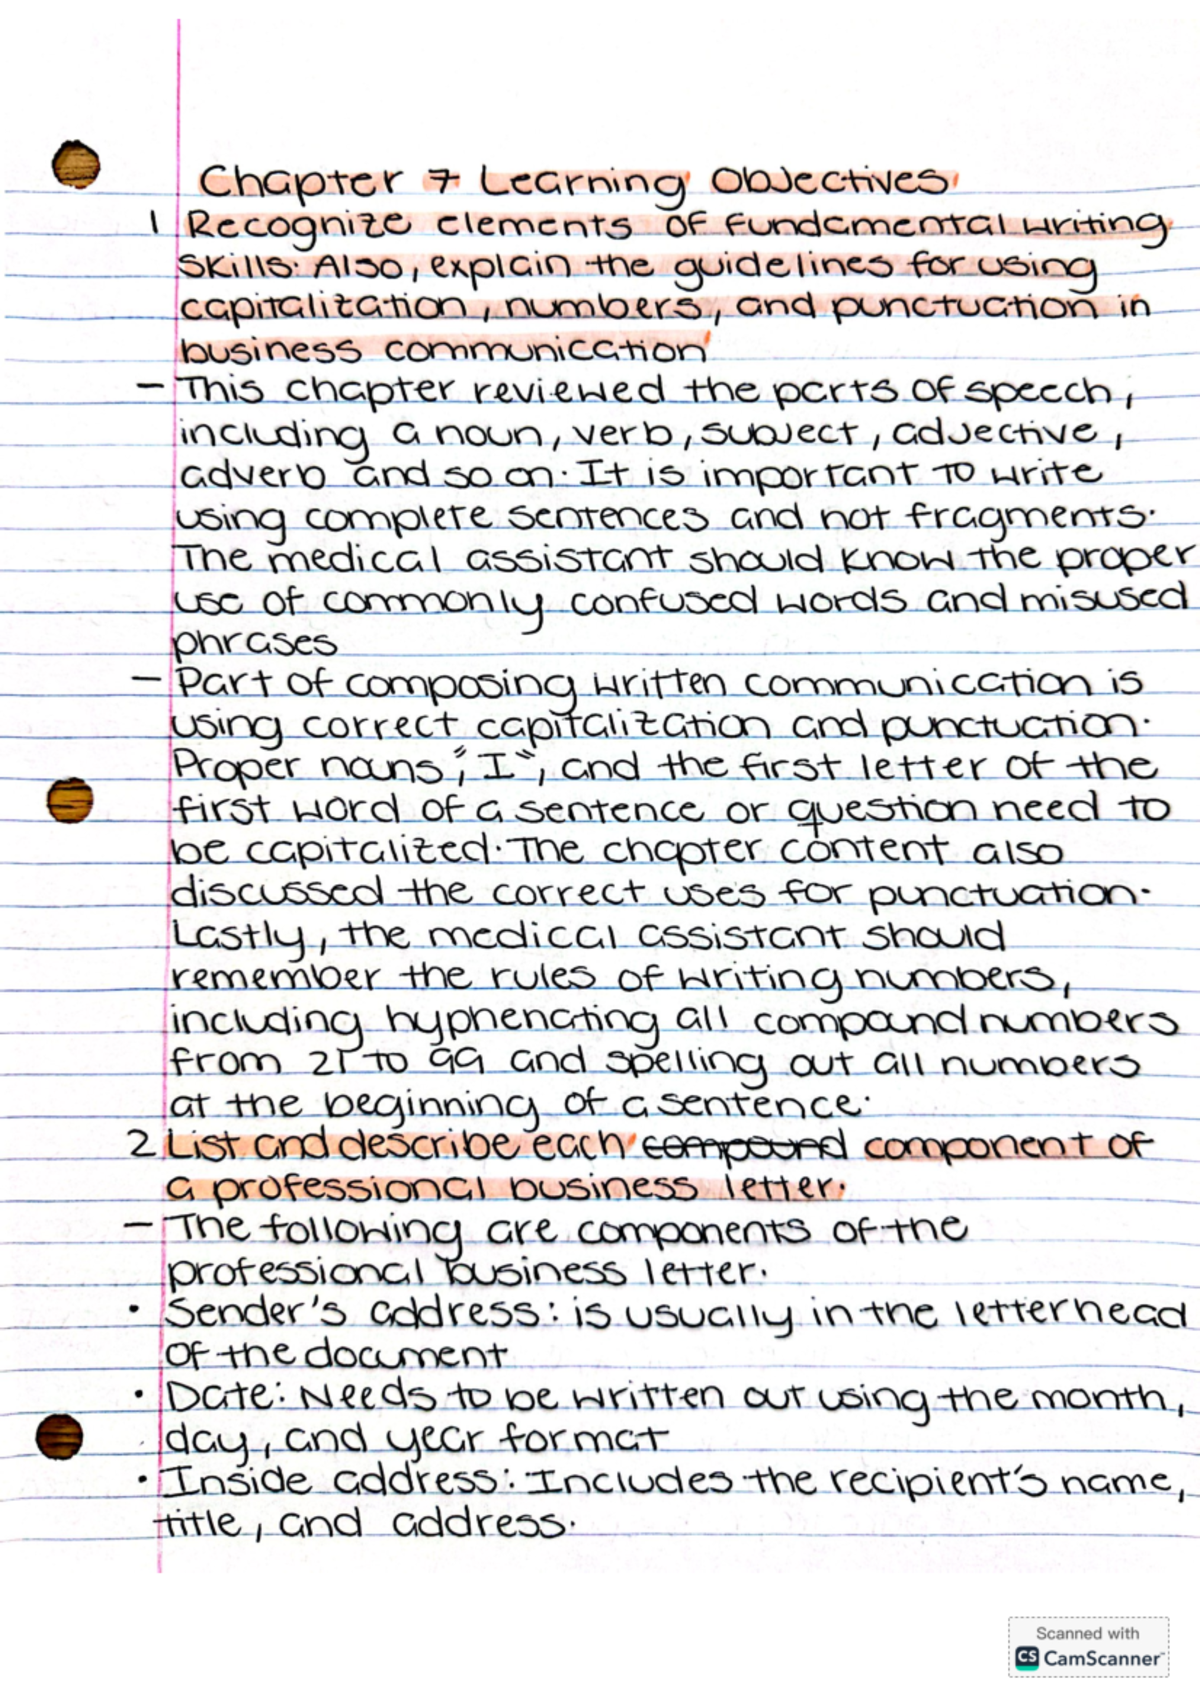 Chapter 7 Learning Objectives
1 Recognize elements of fundamental writing
skills. Also, explain the guidelines for using
capitalization, numbers, and punctuation in
business communication
- This chapter reviewed the parts of speech,
including a noun, verb, subject, adjective,
adverb and so on. It is important to write
using complete sentences and not fragments.
The medical assistant should know the proper
use of commonly confused words and misused
phrases
- Part of composing written communication is
using correct capitalization and punctuation.
Proper nouns, "I", and the first letter of the
first word of a sentence or question need to
be capitalized. The chapter content also
discussed the correct uses for punctuation.
Lastly, the medical assistant should
remember the rules of writing numbers,
including hyphenating all compound numbers
from 21 to 99 and spelling out all numbers
at the beginning of a sentence.
2 List and describe each compound component of
a professional business letter.
- The following are components of the
professional business letter.
• Sender's address: is usually in the letterhead
of the document
• Date: Needs to be written out using the month,
day, and year format
• Inside address: Includes the recipient's name,
title, and address.
Scanned with
CS CamScanner